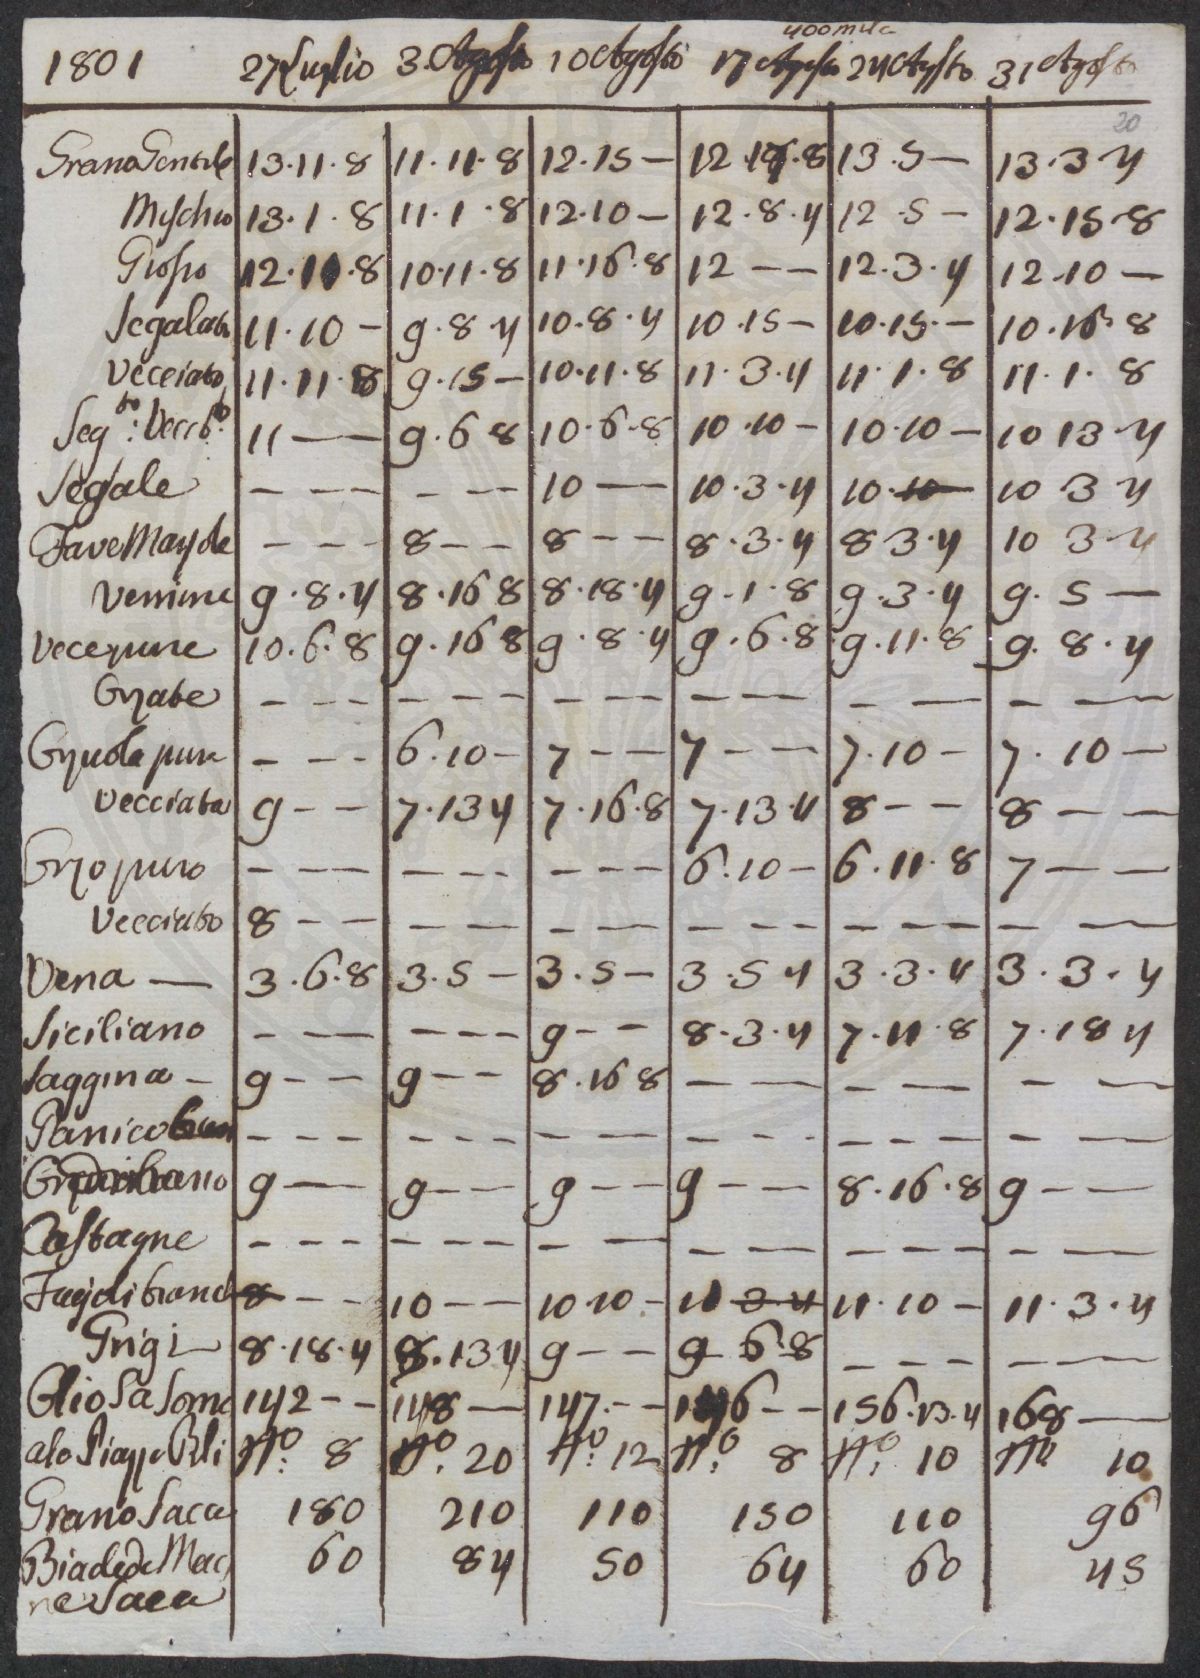 400 mila
1801 27 Luglio 3. Agosto 10 Agosto 17 Agosto 24 Agosto 31 Agosto
20
Grano Gentile 13.11.8 11.11.8 12.15 — 12 .8 13.5 — 13.3.4
Mischio 13.1.8 11.1.8 12.10 — 12.8.4 12.5 — 12.15.8
Grosso 12.11.8 10.11.8 11.16.8 12 — — 12.3.4 12.10 —
Segalato 11.10 — 9.8.4 10.8.4 10.15 — 10.15. — 10.16.8
Vecciato 11.11.8 9.15 — 10.11.8 11.3.4 11.1.8 11.1.8
Seg.to: Vecc.to 11 — — 9.6 8 10.6.8 10.10 — 10.10 — 10 13.4
Segale — — — — — — 10 — — 10.3.4 10.10 — 10 3 4
Fave — — — 8 — — 8 — — 8.3.4 8 3.4 10 3.4
9.8.4 8.16 8 8.18.4 9.1.8 9.3.4 9.5 —
Vece pure 10.6.8 9.16 8 9.8.4 9.6.8 9.11.8 9.8.4
Orzate — — — — — — — — — — — — — — — —
Orzuola pura — — — 6.10 — 7 — — 7 — — 7.10 — 7.10 —
Vecciata 9 — — 7.13 4 7.16.8 7.13.4 8 — — 8 — —
Orzo puro — — — — — — — — — 6.10 — 6.11.8 7 — —
Vecciato 8 — — — — — — — — — — — — — — — —
Vena — 3.6.8 3.5 — 3.5 — 3.5 4 3.3.4 3.3.4
Siciliano — — — — — — 9 — — 8.3.4 7.11.8 7.18 4
Saggina — 9 — — 9 — — 8.16 8 — — — — — —
Panico — — — — — — — — — — — — — — — — —
9 — — 9 — — 9 — — 9 — — 8.16.8 9 — —
Castagne — — — — — — — — — — — — — — — —
Fagioli bianchi 8 — — 10 — — 10 10 — 11 3 4 11.10 — 11.3.4
Grigi 8.18.4 8.13 4 9 — — 9 6.8 — — — — —
Olio La Soma 142 — — 148 — 147. — — 146 — — 156.13.4 168 — —
N.o 8 N.o 20 N.o 12 N.o 8 N.o 10 N.o 10
Grano Sacca 180 210 110 150 110 96
Biade 60 84 50 64 60 45
Sacca